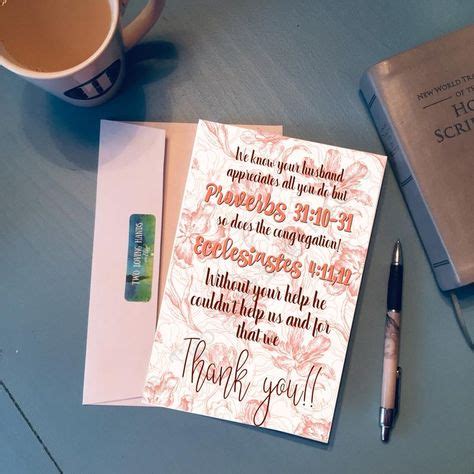 We know your husband
appreciates all you do but
Proverbs 31:10-31
so does the congregation!
Ecclesiastes 4:11,12
Without your help he
couldn't help us and for
that we
Thank you!!
TWO LOVING HANDS
NEW WORLD TRA
OF THE
HO
SCRIP